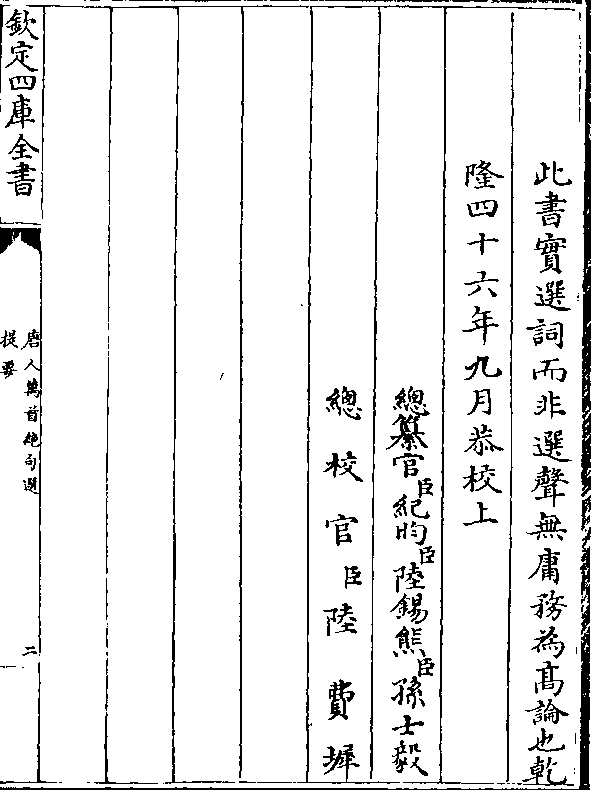 此書實選詞而非選聲無庸務為髙論也乾
隆四十六年九月恭校上
總纂官臣紀昀臣陸錫熊臣孫士毅
總校官臣陸費墀
欽定四庫全書
唐人萬首絶句選
提要
二